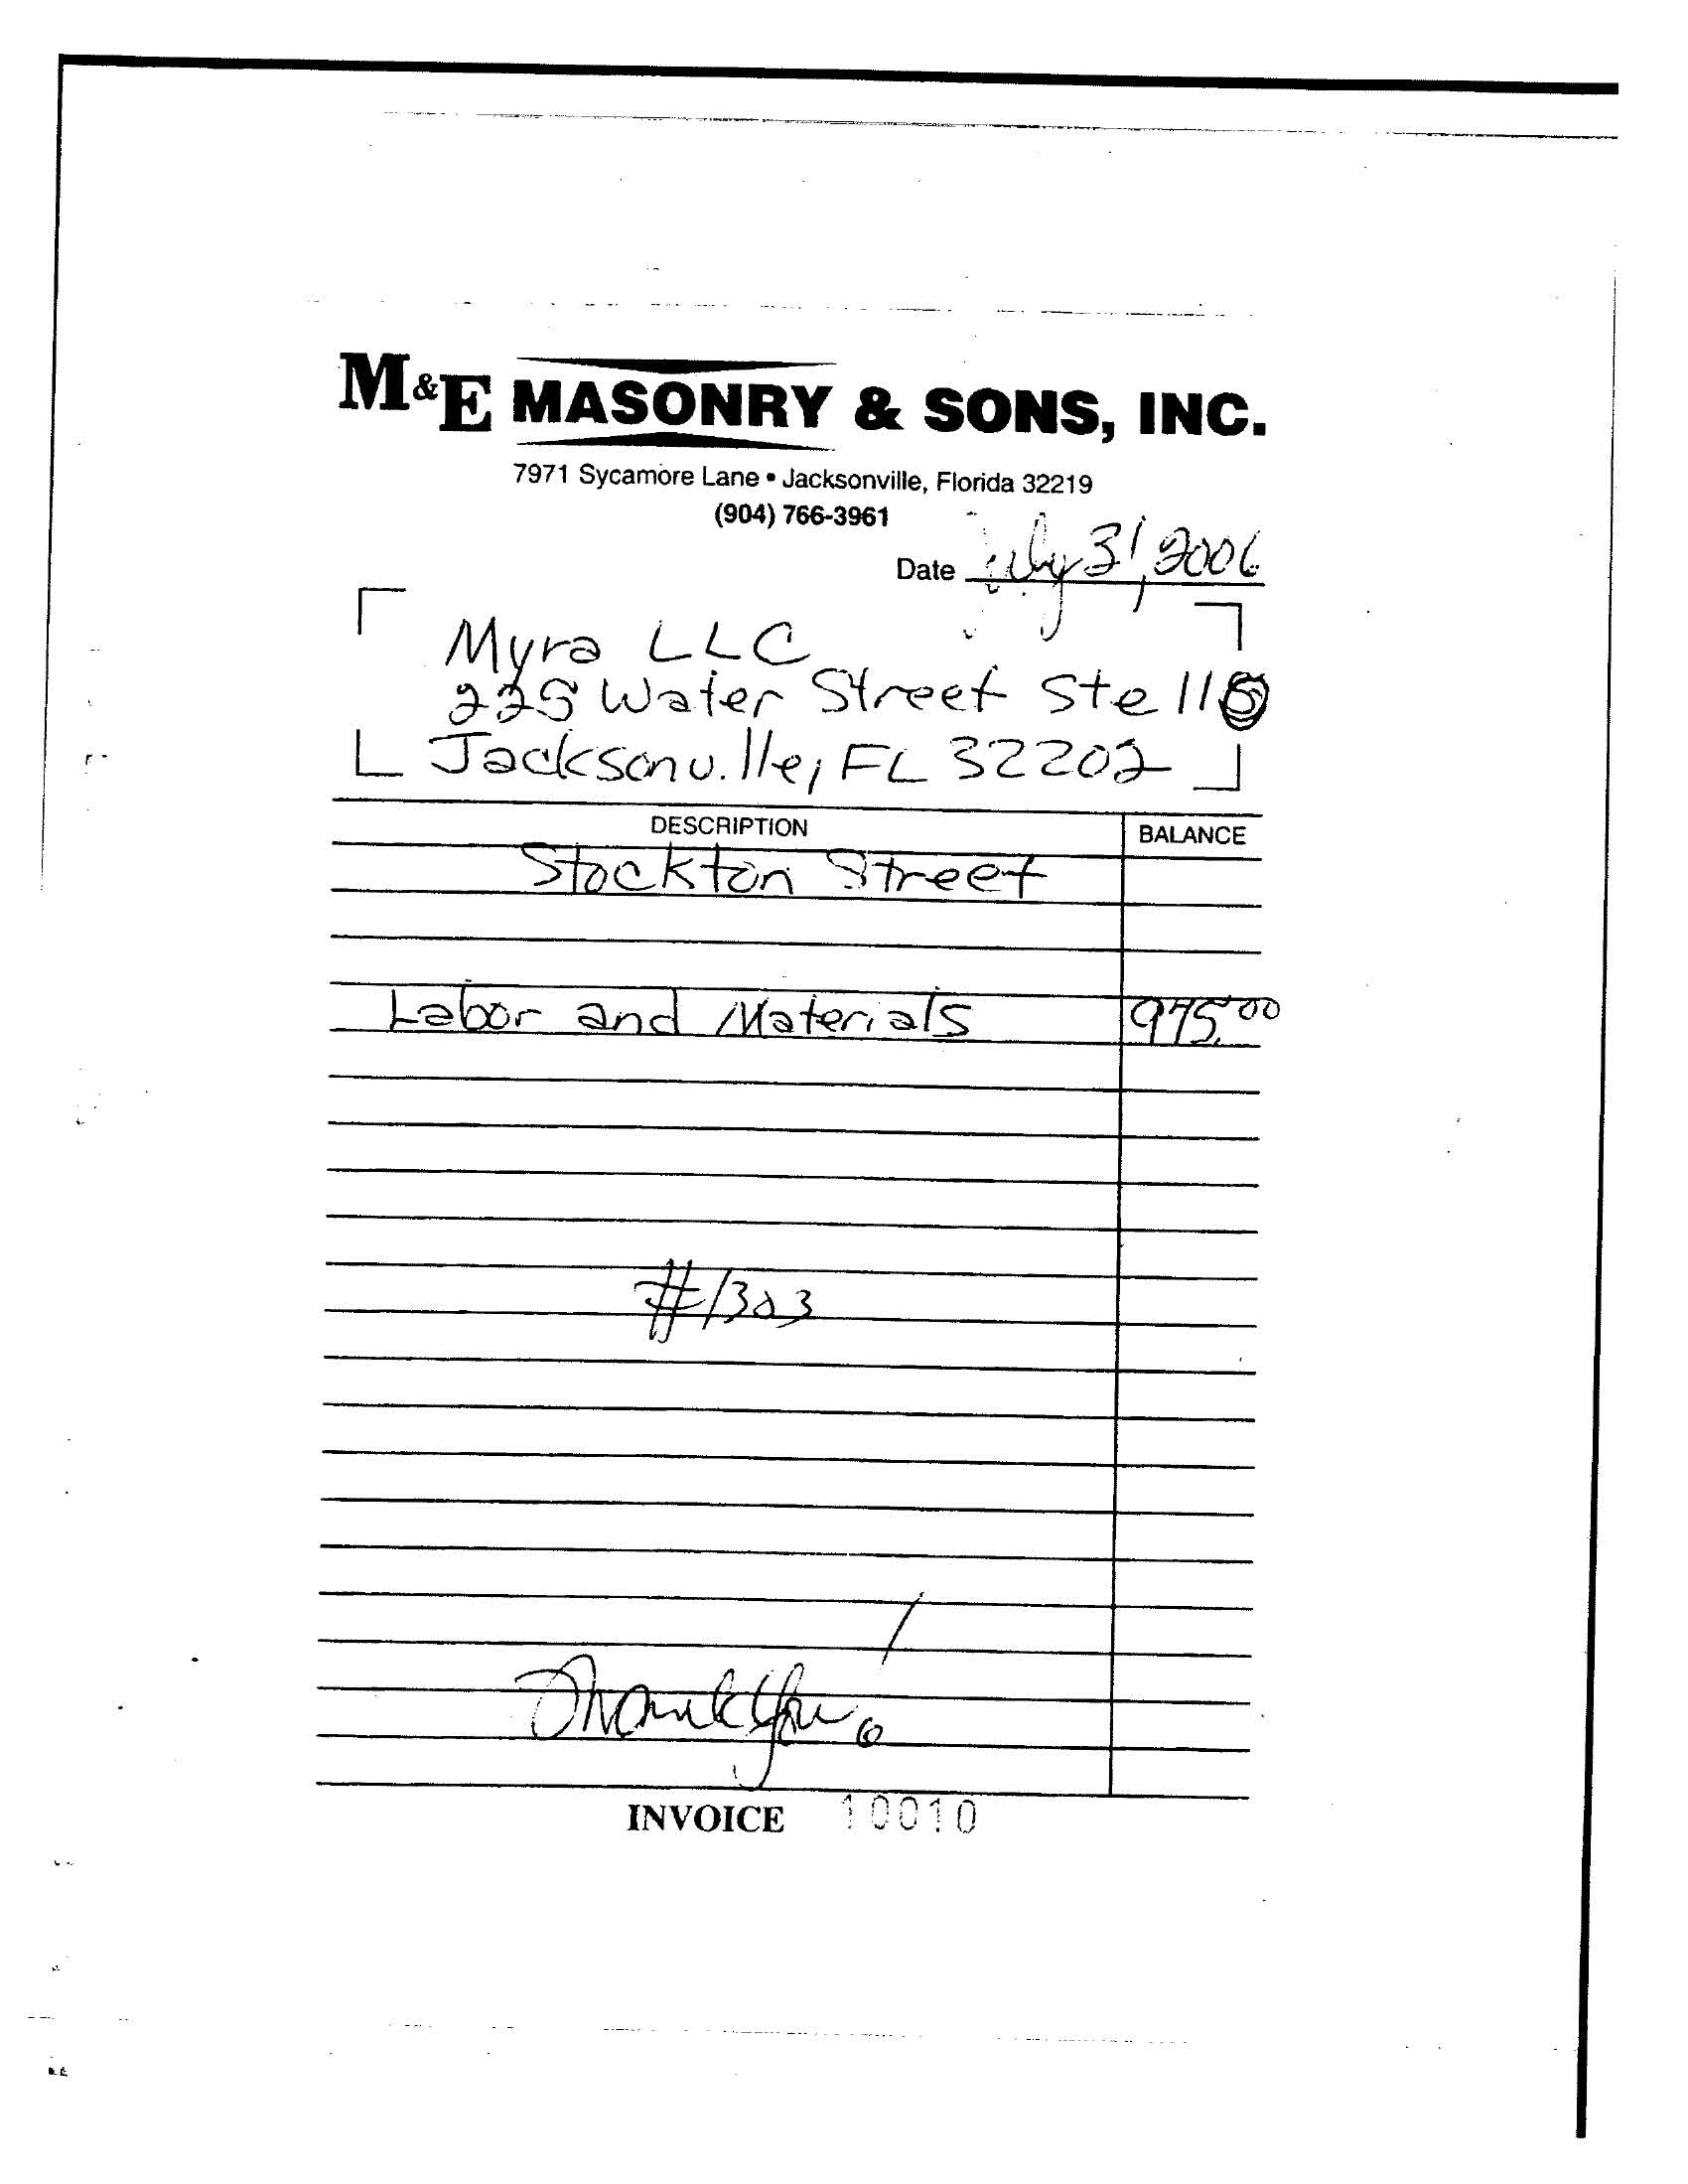 M&E MASONRY & SONS, INC.
7971 Sycamore Lane • Jacksonville, Florida 32219
(904) 766-3961
Date July 31, 2006
Myra LLC
225 Water Street Ste
Jacksonville, FL 32202
DESCRIPTION BALANCE
Stockton Street
Labor and Materials 975.00
#1303
Thank You!
INVOICE 10010